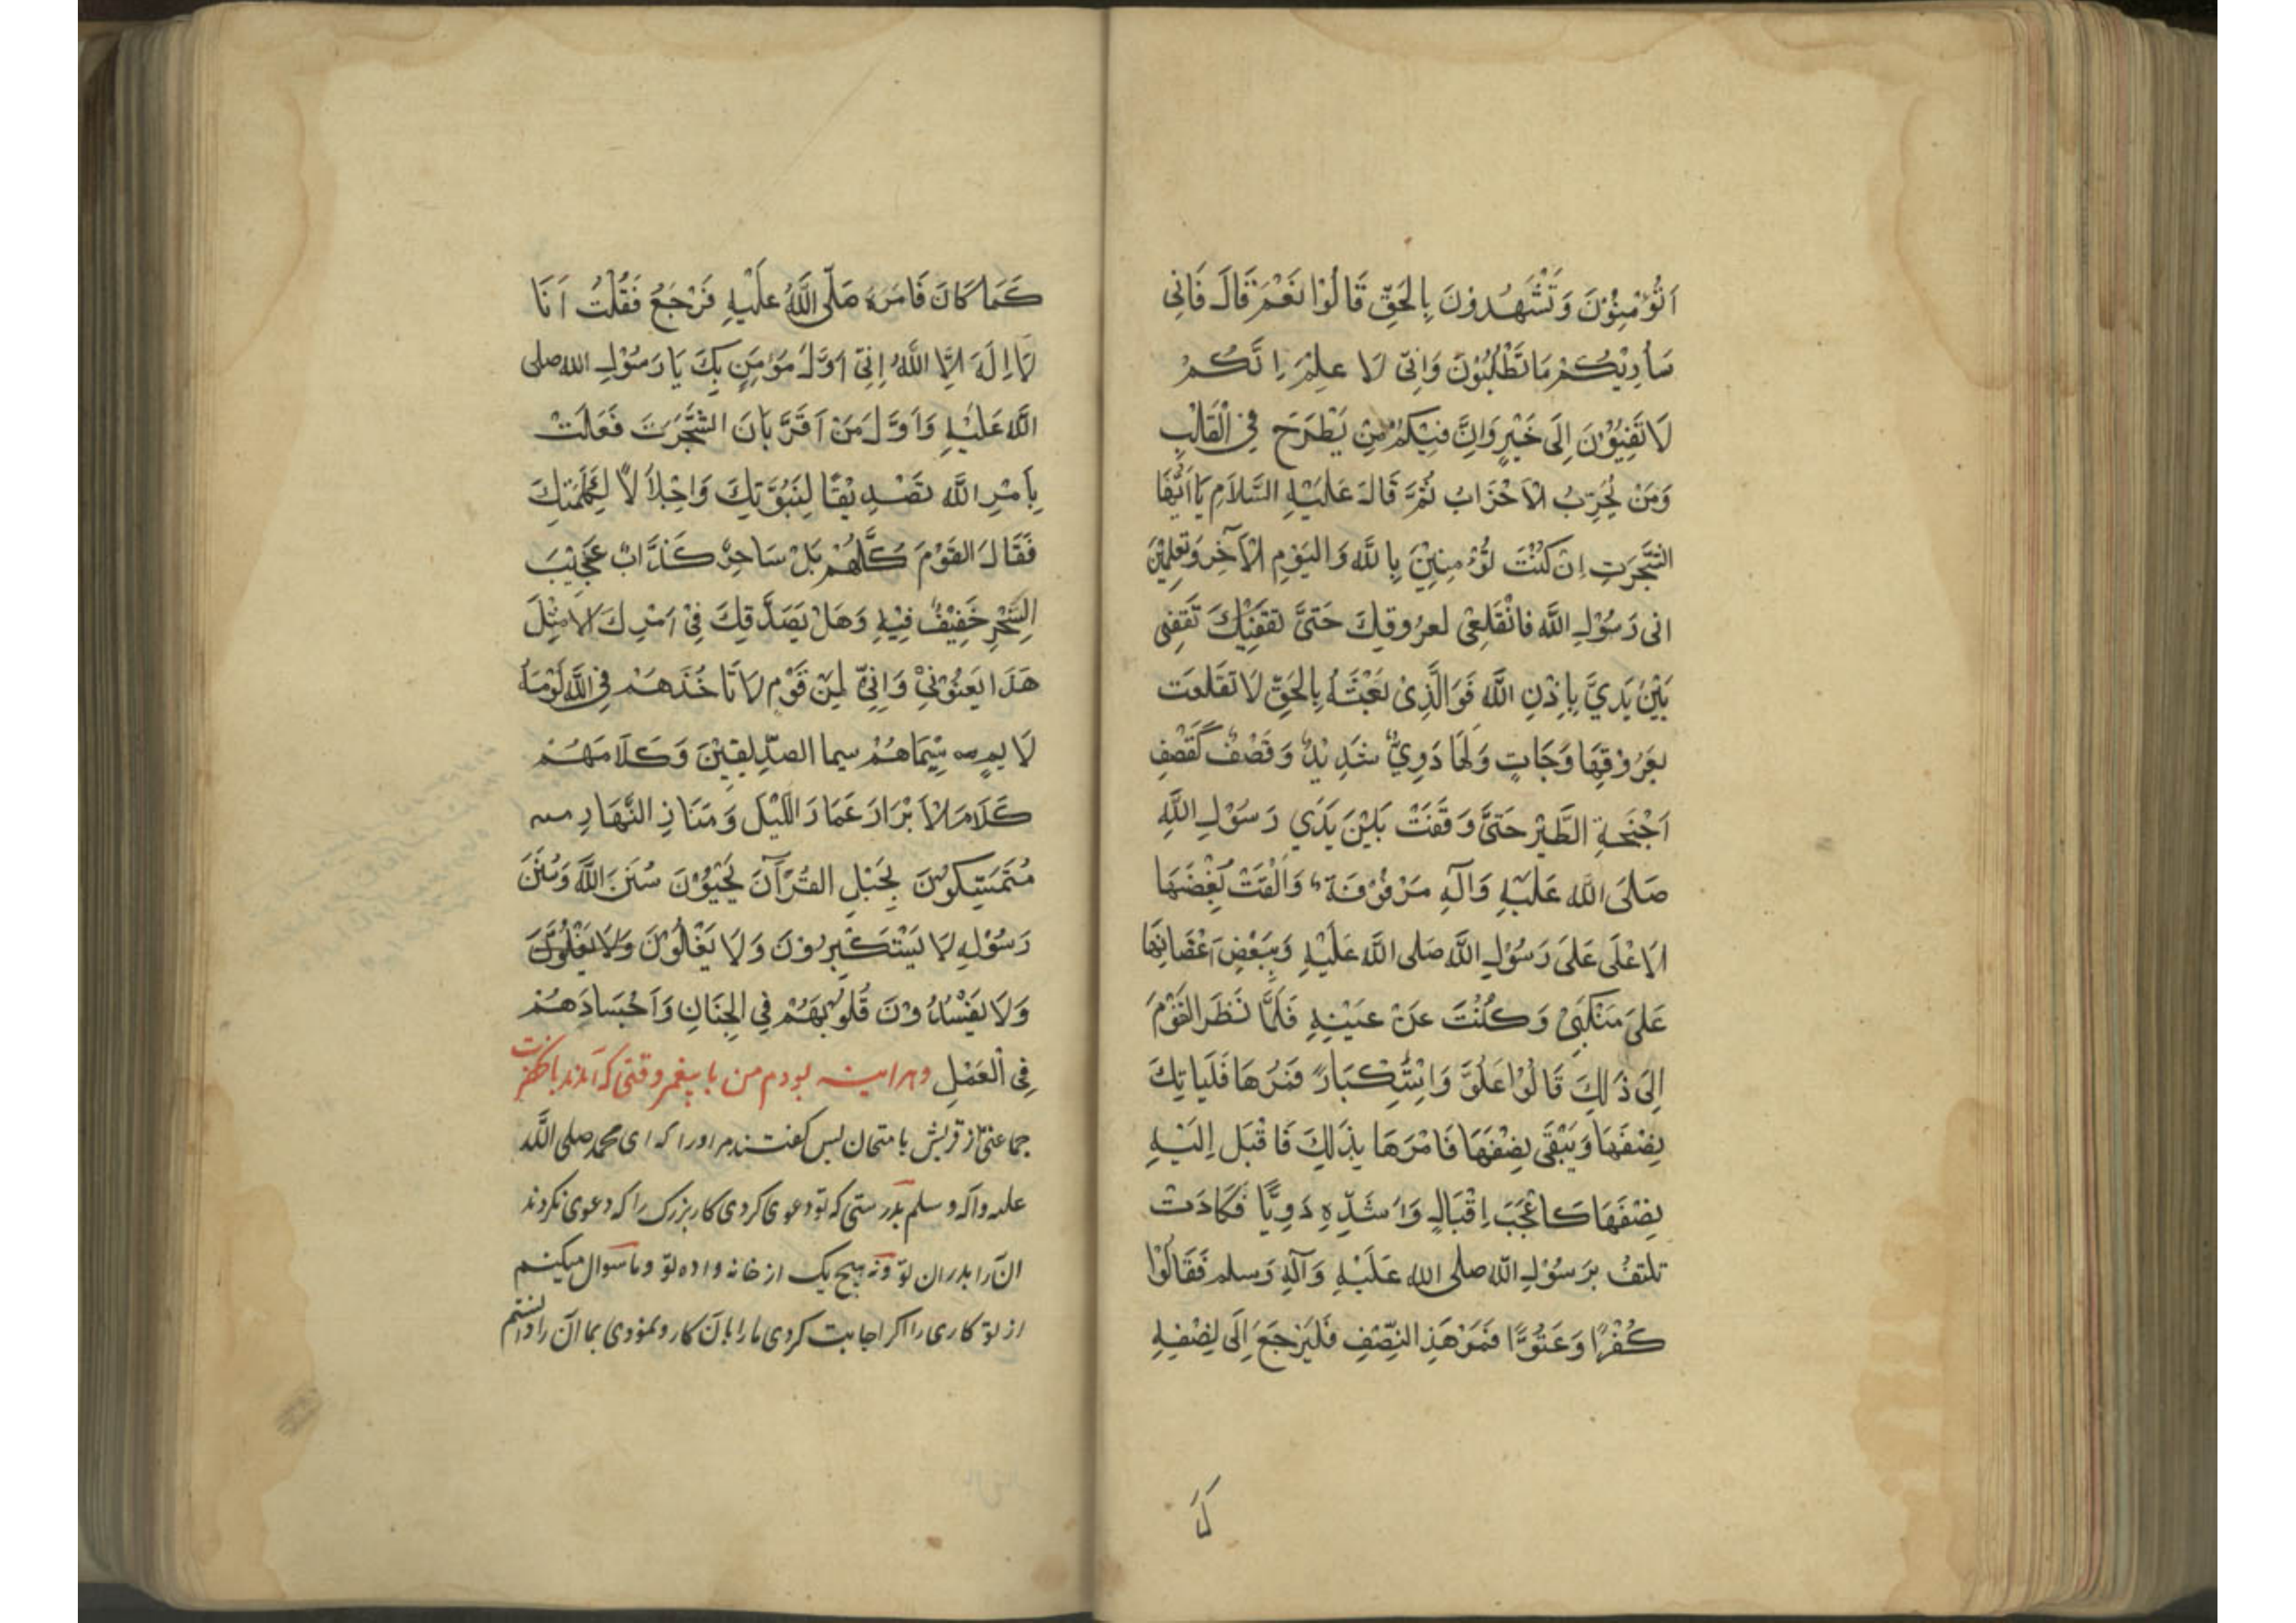 اَتُؤْمِنُوْنَ وَتَشْهَدُوْنَ بِالْحَقِّ قَالُوْا نَعَمْ قَالَ فَاِنِّی
سَاُرِيْكُمْ مَا تَطْلُبُوْنَ وَاِنِّی لَا عِلَمُ اِنَّكُمْ
لَا تَفِيْؤُنَ اِلَی خَيْرٍ وَاِنَّ فِيْكُمْ مِنْ يَطْرَحُ فِی الْقَلْبِ
وَمَنْ يُحَزِّبُ الْاَحْزَابَ ثُمَّ قَالَ عَلَيْهِ السَّلَامِ يَا اَيُّهَا
الشَّجَرَتِ اِنْ كُنْتَ تُؤْمِنِيْنَ بِاللَّهِ وَالْيَوْمِ الْآخِرِ وَتَعْلِمِيْنَ
انی رَسُوْلِ اللَّهِ فَانْقَلِعِی لعرُوقِكَ حَتَّی تقفينك تَقِفِی
بَيْنَ يَدَيَّ بِاِذْنِ اللَّهِ فَوَالَّذِیْ بَعْثَهُ بِالْحَقِّ لَا نْقَلَعَت
بعُرُوْقِهَا وَجَاتٍ وَلَهَا دَوِيٌّ شَدِيْدٌ وَقَصْفٌ كَقَصْفِ
اَجْنِحَةِ الطَّيْرِ حَتَّی وَقَفَتْ بَيْنَ يَدَي رَسُوْلِ اللَّهِ
صَلَی اللَّه عَلَيْهِ وَآلِهِ مَرْفُوْفَة وَاَلْقَتْ بُغْضَهَا
الَاعْلَی عَلَی رَسُوْلِ اللَّه صلی اللَّه عَلَيْهِ وَبِبَعْضِ اَغْصَانِهَا
عَلیَ مَنْكَبِیْ وَكُنْتَ عَنْ عَيْنِهِ فَلَمَّا نَظَرَ القَوْمَ
اِلیَ ذَالِكَ قَالُوْا عَلُوَّ وَاِسْتِكْبَارً فَمُرْهَا فَلَيَاتِكَ
بِصْفَهَا وَيَبْقَی بضْفَهَا فَامْرَهَا بِذَلِكَ فَاقْبَلَ اِلَيْهِ
بِصْفَهَا كَاعْجَبَ اِقْبَالٍ وَاَشَدِّهِ دَوِيًّا فَكَادَتْ
تلتفُ بِرَسُوْلِ اللَّه صلی اللّه عَلَيْهِ وَآلِهِ وَسلم فَقَالُوْا
كُفْرًا وَعَتُوًّا فَمُرْ هَذِ النِّصْفِ فَلْيَرْجَعَ اِلَی نِصْفِهِ
كَمَا
كَمَا كَانَ فَامَرَهُ صَلَّی اللَّهُ عَلَيْهِ فَرَجَعَ فَقُلْتُ اَنَا
لَا اِلَهَ اِلَّا اللَّهُ اِنِّی اَوَّلُ مَؤْمِنٍ بِكَ يَا رَسُوْلِ اللّه صلی
اللَّه عَلَيْهِ وَاَوَّلَ مَنْ اَقَرَّ بَانَ الشَّجَرَتَ فَعَلَتْ
بِاَمْرِ اللَّه تَصْدِيْقًا لِنَبُوَّتِكَ وَاِجْلَالًا لِكَلِمَتِكَ
فَقَالَ القَوْمَ كُلُّهُمْ بَلْ سَاحِرٌ كَذَّابٌ عَجِيْبَ
السِّحْرِ خَفِيْفٌ فِيْهِ وَهَلْ يَصَدِّقِكَ فِیْ اَمْرِكَ اِلا مِثْلَ
هَذَا يَعْنُوْنِیْ وَاِنِّی لِمَنْ قَوْمٍ لَا تَاخُذَهُمْ فِی اللَّهِ لَوْمَة
لَا يمٍ سِيْمَاهُمْ سيما الصدِّيقِيْنَ وَكَلَامَهُمْ
كَلَامَ لْاَبْرَارَ عَمَارَ اللَّيْلَ وَمَنَارِ النَّهَارِ
مُتَمَسِّكُوْنَ بِحَبْلِ القُرْآنَ يُحْيَوْنَ سُنَنَ اللَّه وَسُنَنَ
رَسُوْلِهِ لَا يَسْتَكْبِرُوْنَ وَلَا يَعْلُوْنَ وَلَا يَغْلُوْنَ
وَلَا يَفْسُدُوْنَ قُلُوْبَهُمْ فِی الجِنَانِ وَاَجْسَادَهُمْ
فِی الْعَمَلِ وهراینه بودم من با پیغمبر وقتی که آمدند با نحضرت
جماعتی از قریش بامتحان پس گفتند مر او را که ای محمد صلی اللّه
علیه وآله وسلم بدرستی که تو دعوی کردی کار بزرک را که دعوی نکردند
انرا پدران تو ونه هیچ یک از خانه واده تو وما سوال میکنیم
از تو کاری را اکر اجابت کردی ما را بان کار ونمودی بما آن را دانستیم